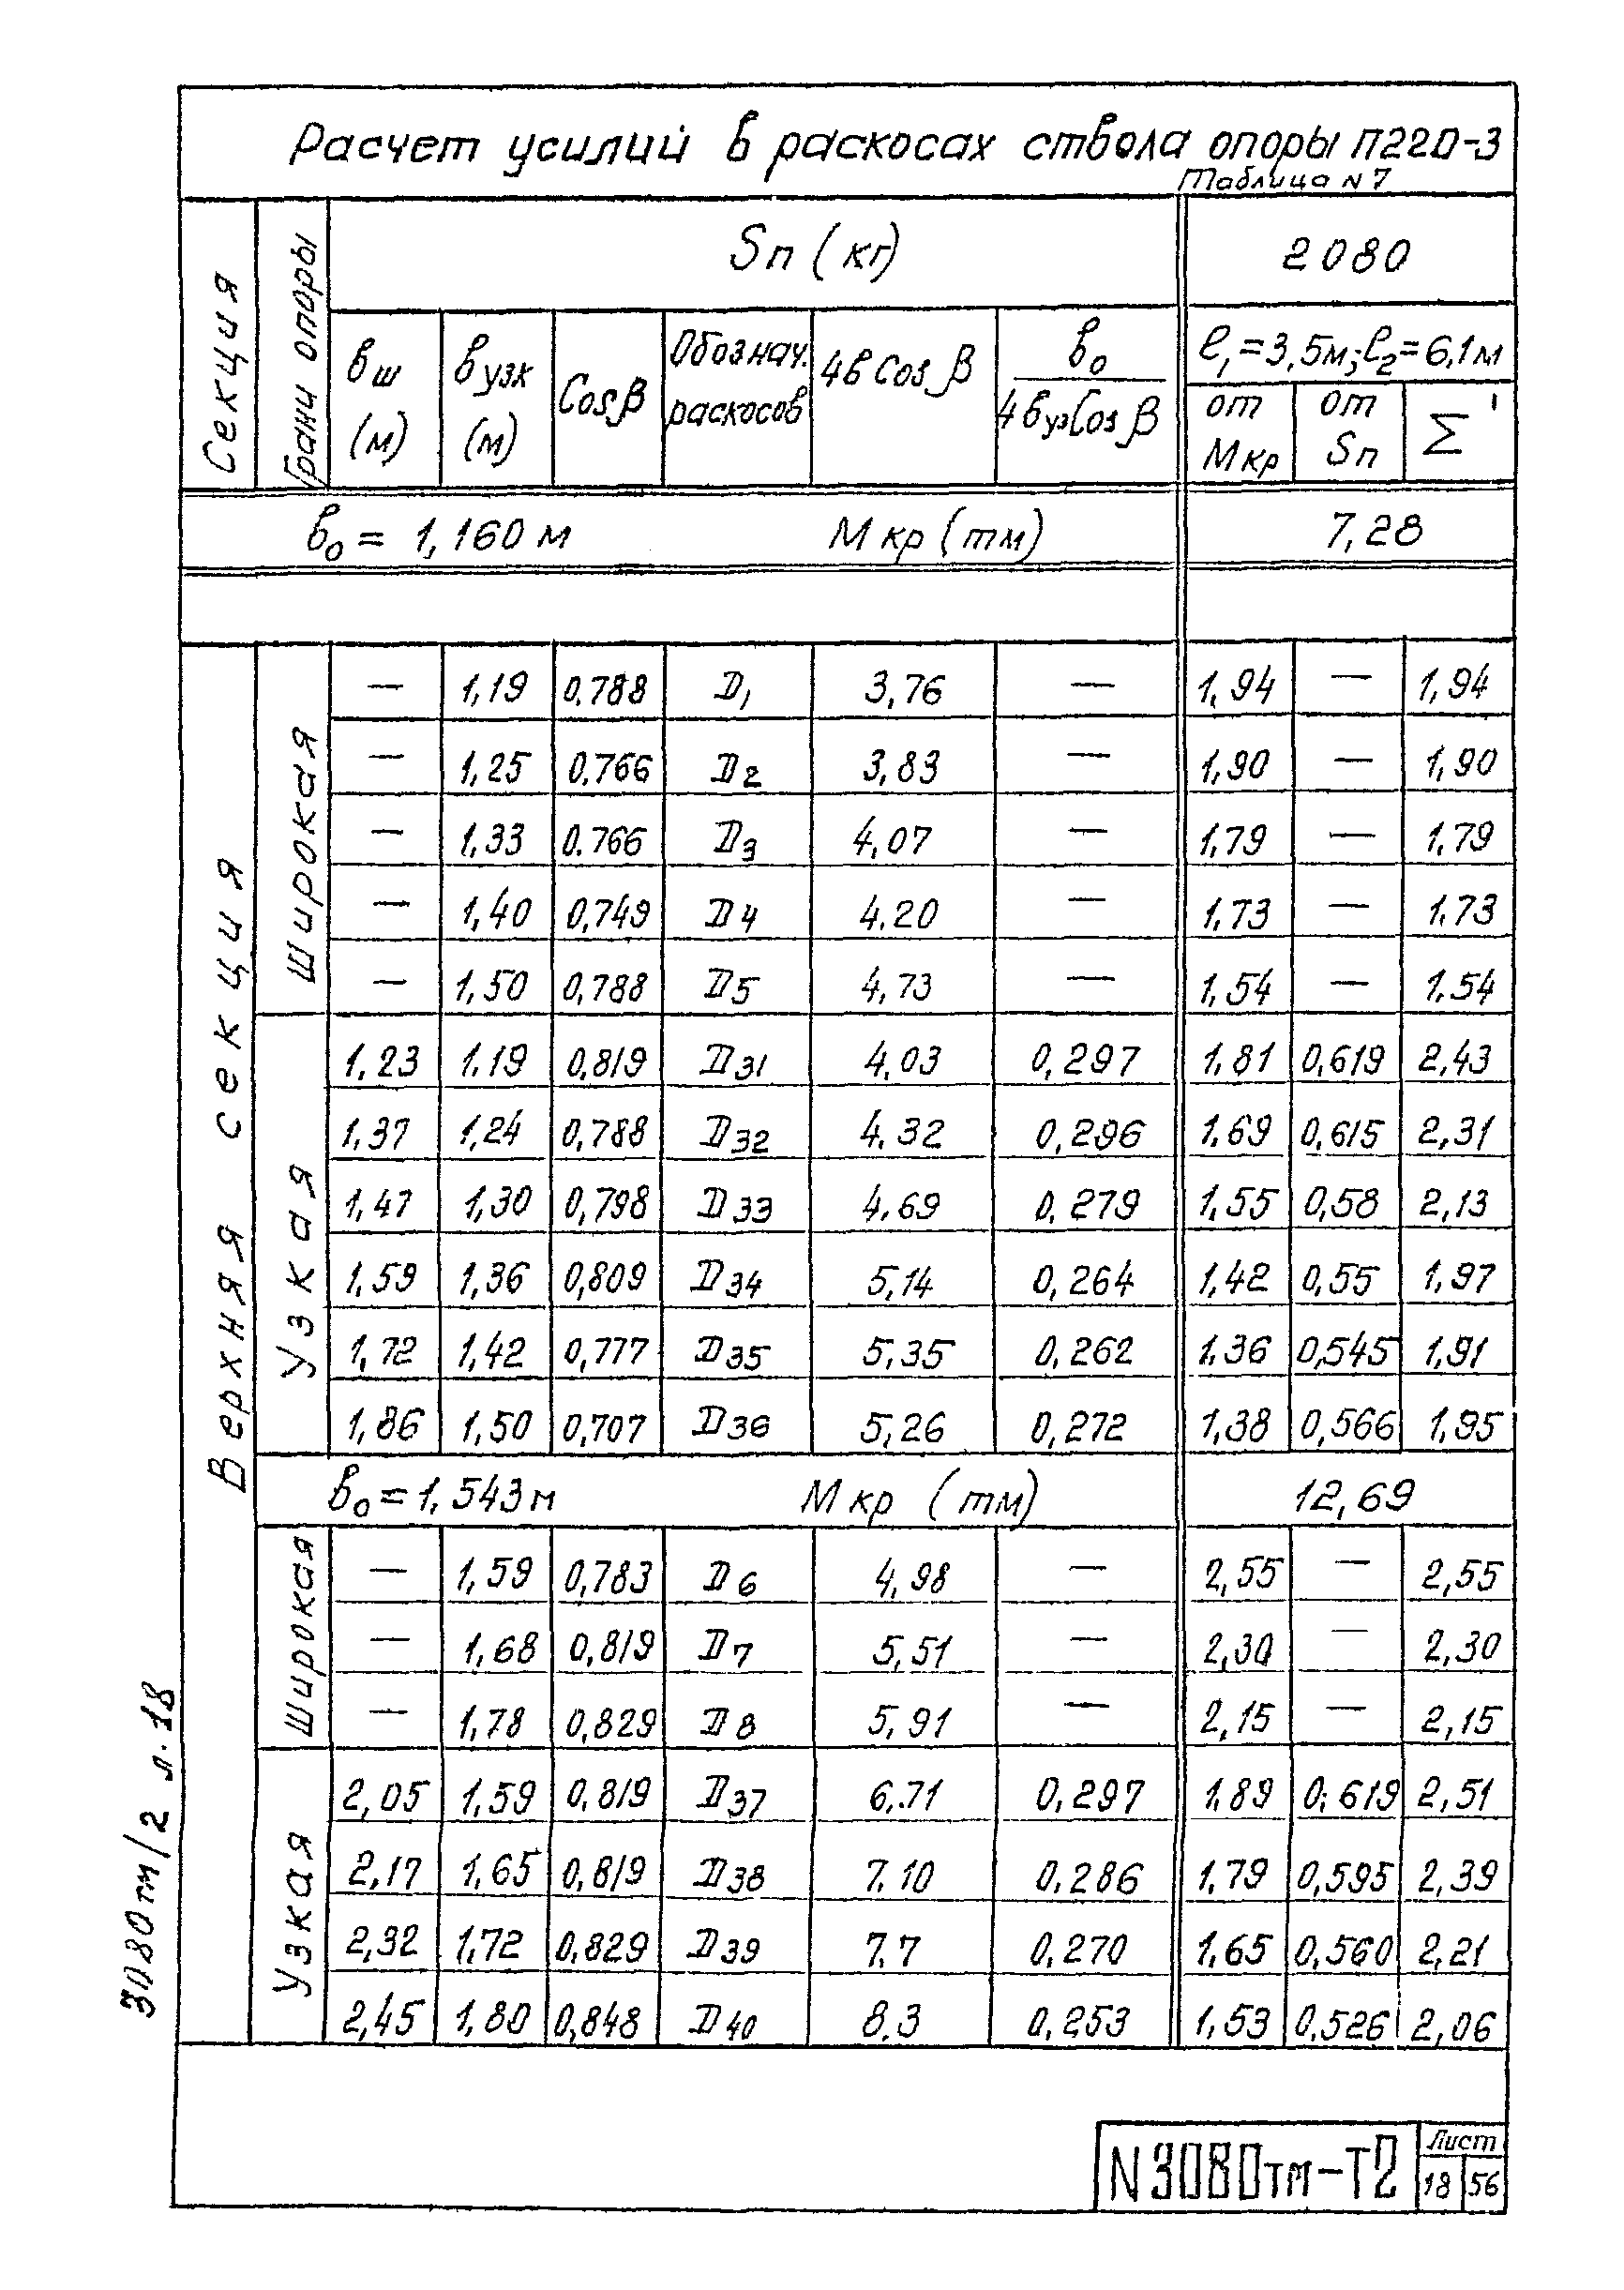 Расчет усилий в раскосах ствола опоры П220-3
Таблица N 7
Секция
Грани опоры
Sп (кг)
2080
bш (м)
bузк (м)
Cosβ
Обознач. раскосов
4b Cos β
b₀ / 4bуз Cos β
ℓ₁=3,5м; ℓ₂=6,1м
от Мкр
от Sп
Σ'
b₀ = 1,160 м Мкр (тм) 7,28
Верхняя секция
Широкая
— 1,19 0,788 D₁ 3,76 — 1,94 — 1,94
— 1,25 0,766 D₂ 3,83 — 1,90 — 1,90
— 1,33 0.766 D₃ 4,07 — 1,79 — 1,79
— 1,40 0,749 D₄ 4.20 — 1,73 — 1.73
— 1,50 0,788 D₅ 4,73 — 1,54 — 1.54
Узкая
1,23 1.19 0,819 D₃₁ 4.03 0,297 1,81 0,619 2,43
1,37 1,24 0,788 D₃₂ 4,32 0,296 1,69 0,615 2,31
1,47 1,30 0,798 D₃₃ 4,69 0,279 1,55 0,58 2,13
1,59 1,36 0,809 D₃₄ 5,14 0,264 1,42 0,55 1,97
1,72 1,42 0,777 D₃₅ 5,35 0,262 1,36 0,545 1,91
1,86 1,50 0,707 D₃₆ 5,26 0,272 1,38 0,566 1,95
b₀ = 1,543м Мкр (тм) 12,69
Широкая
— 1,59 0,783 D₆ 4,98 — 2,55 — 2,55
— 1,68 0,819 D₇ 5,51 — 2,30 — 2,30
— 1,78 0,829 D₈ 5,91 — 2,15 — 2,15
Узкая
2,05 1,59 0,819 D₃₇ 6,71 0,297 1,89 0,619 2,51
2,17 1,65 0,819 D₃₈ 7.10 0,286 1,79 0,595 2,39
2,32 1,72 0,829 D₃₉ 7.7 0,270 1,65 0,560 2,21
2,45 1,80 0,848 D₄₀ 8.3 0,253 1,53 0,526 2,06
3080тм/2 л.18
N3080тм-Т2
Лист
18 56